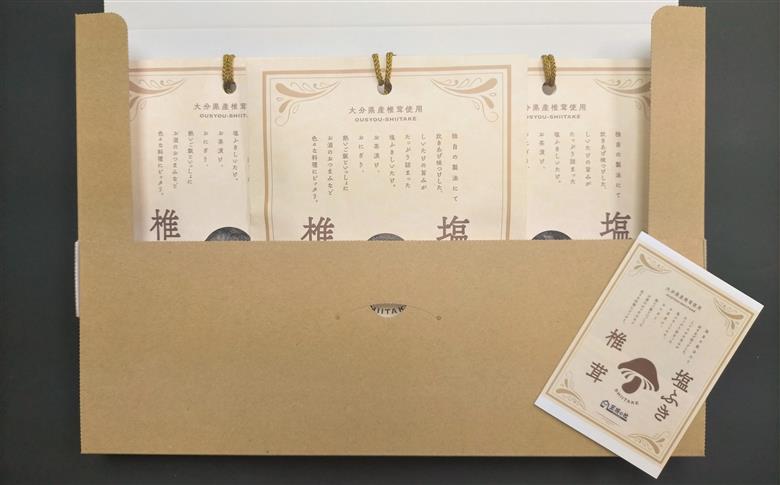 大分県産椎茸使用
OUSYOU-SHIITAKE
塩ふきしいたけ。
お茶漬け、
おにぎり、
熱いご飯といっしょに
お酒のおつまみなど
色々な料理にピッタリ。
椎
大分県産椎茸使用
OUSYOU-SHIITAKE
独自の製法にて
炊きあげ味つけした、
しいたけの旨みが
たっぷり詰まった
塩ふきしいたけ。
お茶漬け、
おにぎり、
熱いご飯といっしょに
お酒のおつまみなど
色々な料理にピッタリ。
塩
椎
大分県産椎茸使用
OUSYOU-SHIITAKE
独自の製法にて
炊きあげ味つけした、
しいたけの旨みが
たっぷり詰まった
塩ふきしいたけ。
お茶漬け、
塩
HIITAK
大分県産椎茸使用
塩ふき
椎茸
SHIITAKE